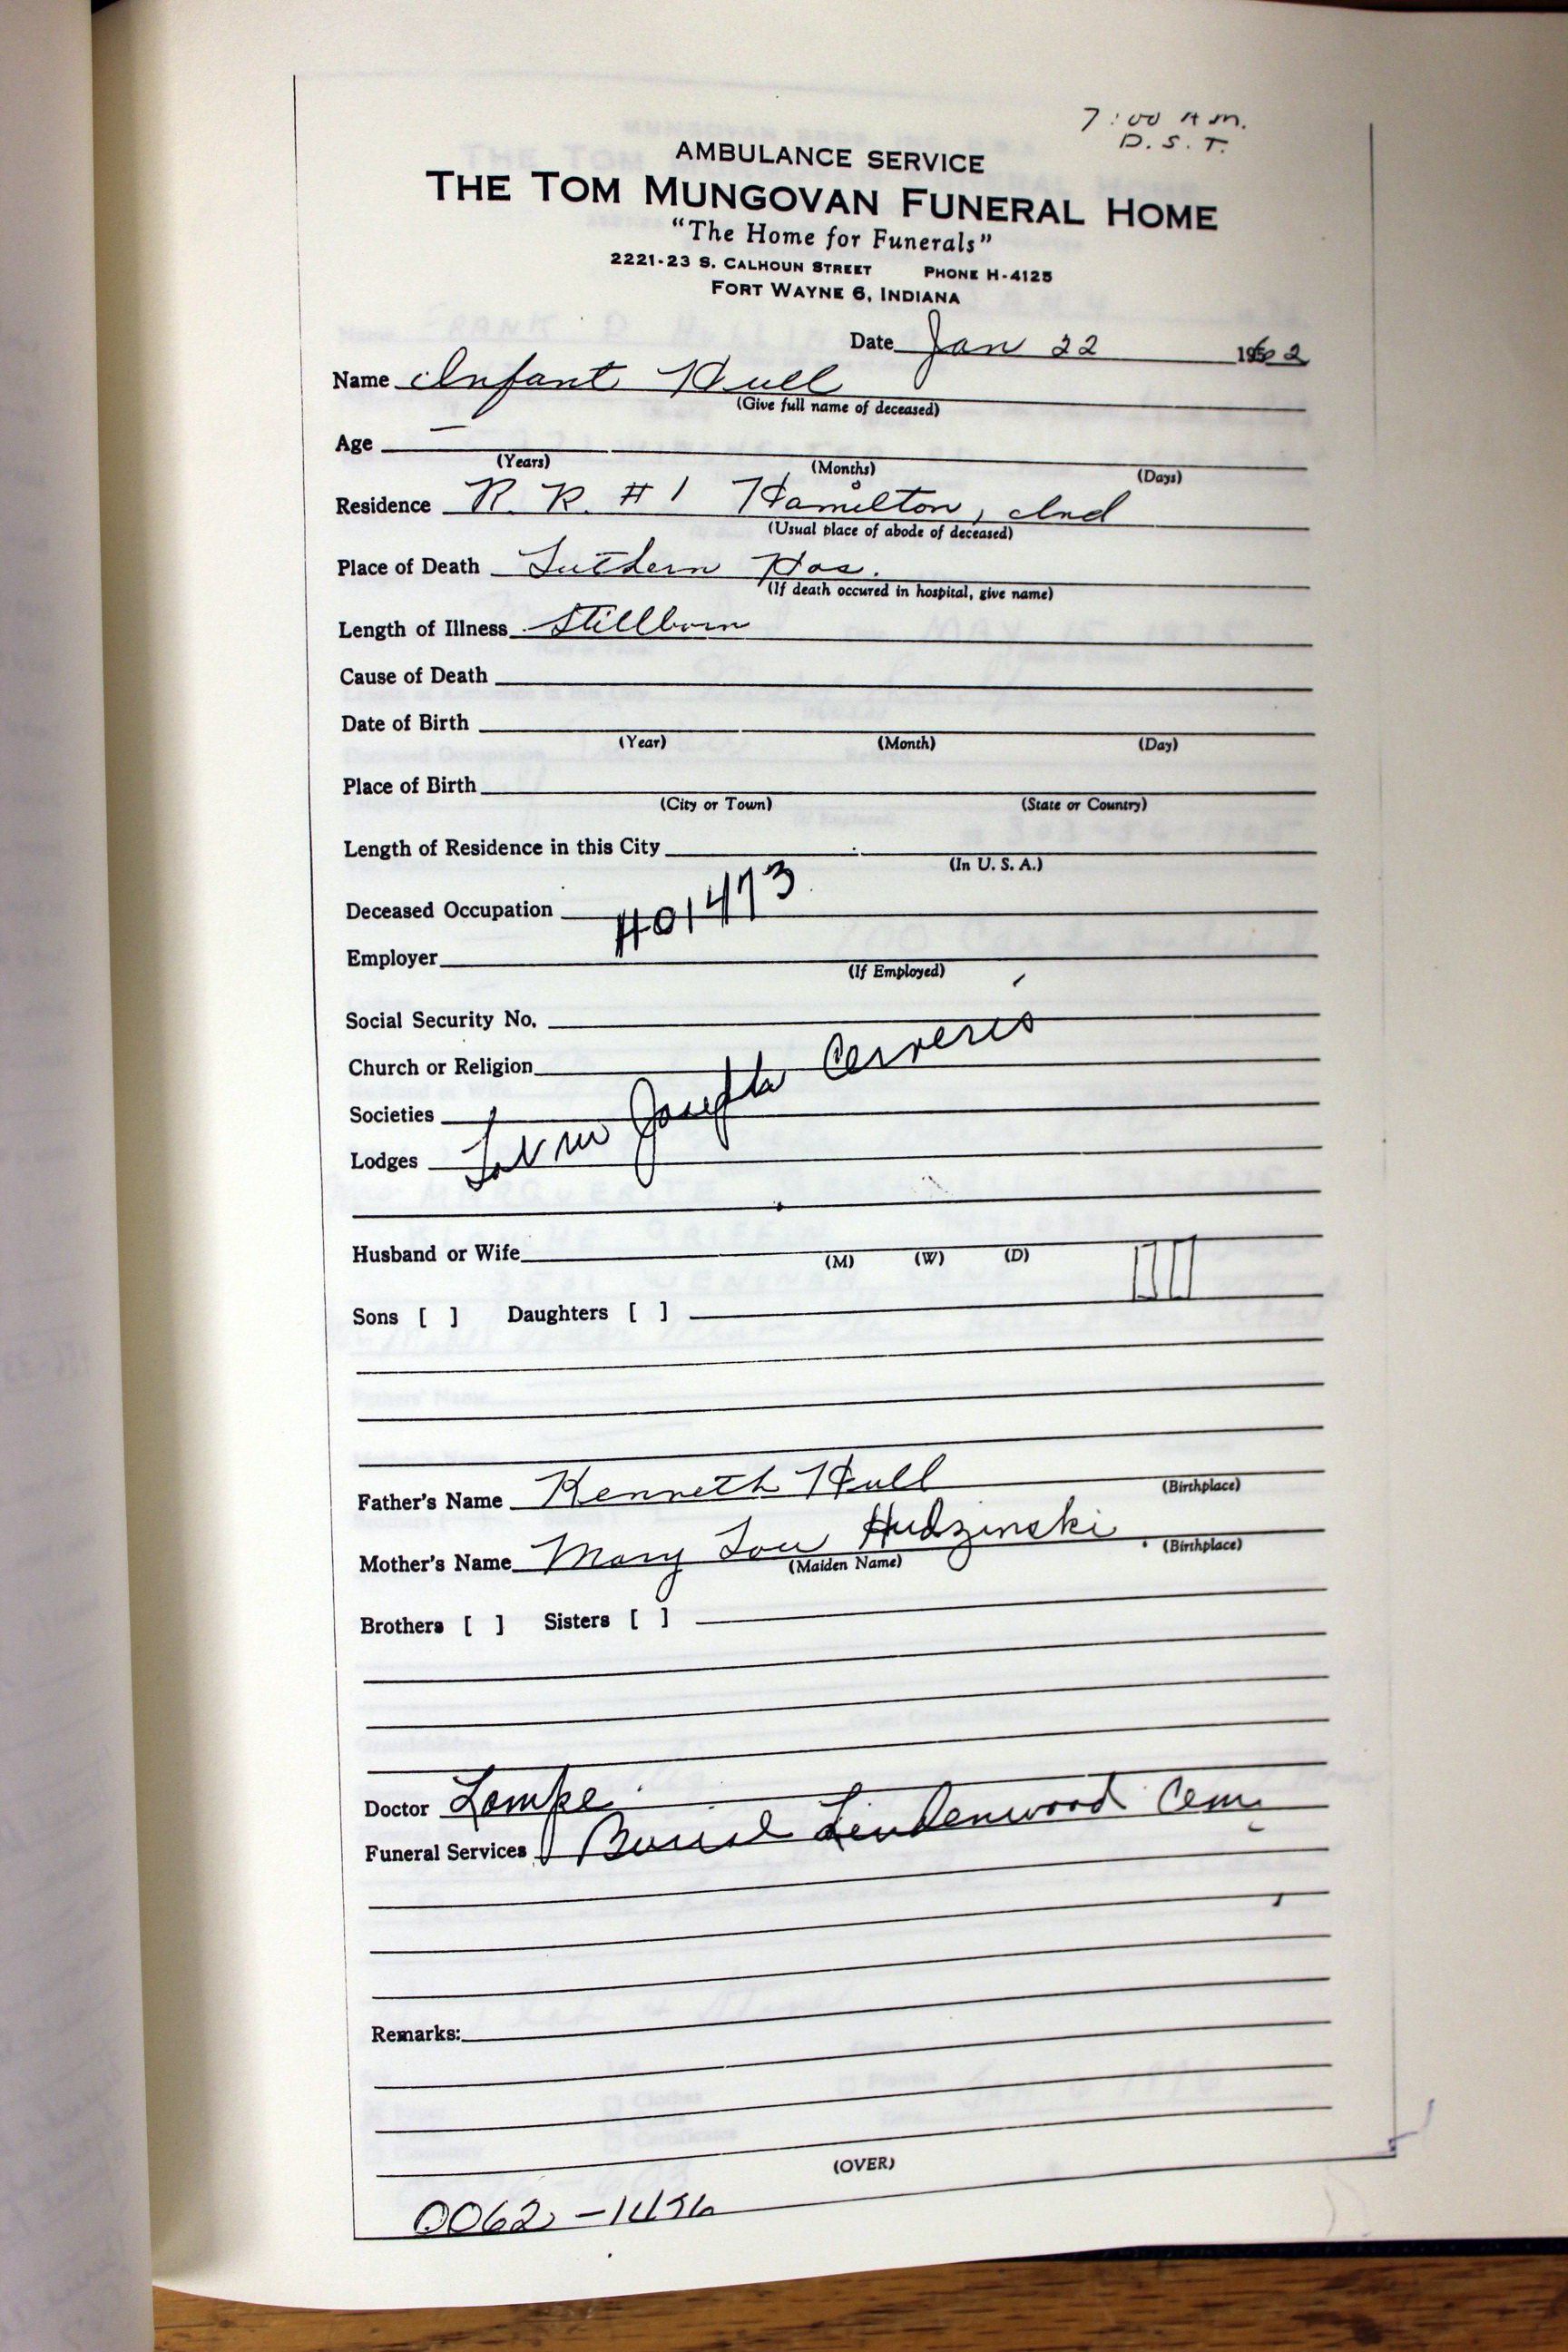 7:00 A.M.
D.S.T.
AMBULANCE SERVICE
THE TOM MUNGOVAN FUNERAL HOME
"The Home for Funerals"
2221-23 S. CALHOUN STREET PHONE H-4125
FORT WAYNE 6, INDIANA
Date Jan 22 1962
Name Infant Hull
(Give full name of deceased)
Age —
(Years) (Months) (Days)
Residence R. R. #1 Hamilton, Ind
(Usual place of abode of deceased)
Place of Death Luthern Hos.
(If death occured in hospital, give name)
Length of Illness Stillborn
Cause of Death
Date of Birth
(Year) (Month) (Day)
Place of Birth
(City or Town) (State or Country)
Length of Residence in this City
(In U. S. A.)
Deceased Occupation
#01473
Employer
(If Employed)
Social Security No.
Church or Religion
Societies
Joseph
Lodges
Husband or Wife
(M) (W) (D)
Sons [ ] Daughters [ ]
Father's Name Kenneth Hull (Birthplace)
Mother's Name Mary Lou Hudzinski (Birthplace)
(Maiden Name)
Brothers [ ] Sisters [ ]
Doctor Lampe
Funeral Services Burial Lindenwood Cem.
Remarks:
(OVER)
0062-1456